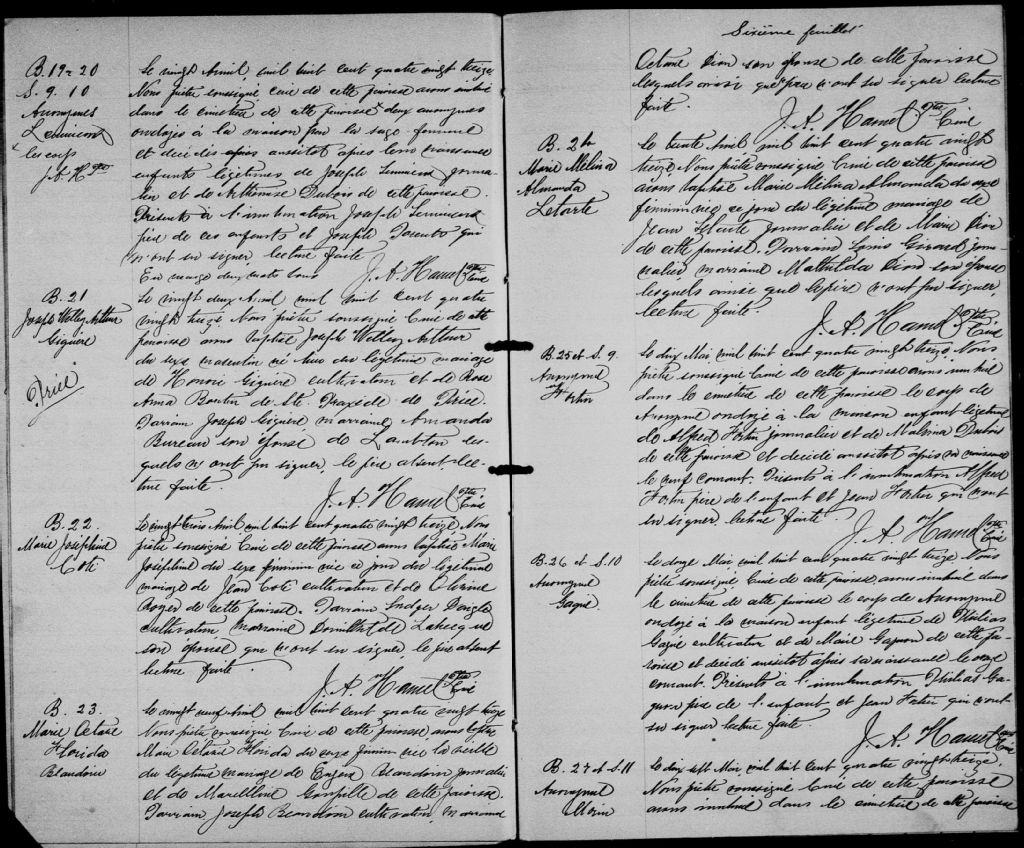 B. 19 - 20
S. 9. 10
Anonymes
Lemieux
les corps
J. A. H. Ptre
Le vingt Avril, mil huit cent quatre vingt treize
Nous prêtre soussigné curé de cette paroisse avons inhumé
dans le cimetière de cette paroisse deux anonymes
ondoyés à la maison par la sage femme
et décédés aussitôt après leur naissance
enfants légitimes de Joseph Lemieux journa-
lier et de Dubois de cette paroisse.
Présents à l'inhumation Joseph Lemieux
père de ces enfants et Joseph qui
n'ont su signer lecture faite
En marge deux mots bons J. A. Hamel Ptre Curé
B. 21
Joseph Willey Arthur
Giguère
Price
Le vingt deux Avril mil huit cent quatre
vingt treize. Nous prêtre soussigné Curé de cette
paroisse avons baptisé Joseph Willey Arthur
du sexe masculin né du légitime mariage
de Honoré Giguère cultivateur et de Rose
Anna Boutin de Ste. Praxède de Price.
Parrain Joseph Giguère marraine Amanda
Bureau son épouse de Lambton les-
quels n'ont pu signer. le père absent lec-
ture faite.
J. A. Hamel Ptre Curé
B. 22.
Marie Joséphine
Coté
Le vingt trois Avril mil huit cent quatre vingt treize Nous
prêtre soussigné Curé de cette paroisse avons baptisé Marie
Joséphine du sexe féminin née ce jour du légitime
mariage de Jean Coté cultivateur et de
Royer de cette paroisse. Parrain Ludger Daigle
cultivateur, marraine de
son épouse qui n'ont su signer le père absent
lecture faite.
J. A. Hamel Ptre Curé
B. 23.
Marie Octavie
Florida
Beaudoin
Le vingt neuf Avril mil huit cent quatre vingt treize
Nous prêtre soussigné Curé de cette paroisse, avons baptisé
Marie Octavie Florida du sexe féminin née la veille
du légitime mariage de Beaudoin journalier
et de de cette paroisse.
Parrain, Joseph Beaudoin cultivateur, marraine
Sixième feuillet
Octavie Dion son épouse de cette paroisse
lesquels ainsi que père n'ont su signer lecture
faite.
J. A. Hamel Ptre Curé
B. 24
Marie Mélina
Almanda
Letarte
Le trente Avril mil huit cent quatre vingt
treize. Nous prêtre soussigné Curé de cette paroisse
avons baptisé Marie Mélina Almanda du sexe
féminin née ce jour du légitime mariage de
Jean Letarte journalier et de Marie Dion
de cette paroisse. Parrain Louis Girard jour-
nalier marraine Mathilda Dion son épouse
lesquels ainsi que le père n'ont pu signer,
lecture faite.
J. A. Hamel Ptre Curé
B. 25 et S. 9.
Anonyme
Fortier
Le dix Mai mil huit cent quatre vingt treize. Nous
prêtre soussigné Curé de cette paroisse avons inhumé
dans le cimetière de cette paroisse le corps de
Anonyme ondoyé à la maison enfant légitime
de Alfred Fortier journalier et de Malvina Dubois
de cette paroisse et décédé aussitôt après sa naissance
le neuf courant. Présents à l'inhumation Alfred
Fortier père de l'enfant et Jean Fortier qui n'ont
su signer lecture faite.
J. A. Hamel Ptre Curé
B. 26 et S. 10
Anonyme
Gagné.
Le douze Mai mil huit cent quatre vingt treize Nous
prêtre soussigné Curé de cette paroisse, avons inhumé dans
le cimetière de cette paroisse le corps de Anonyme
ondoyé à la maison enfant légitime de Philias
Gagné cultivateur et de Marie Gagnon de cette pa-
roisse et décédé aussitôt après sa naissance le onze
courant. Présents à l'inhumation Philias Ga-
gné père de l'enfant et Jean Fortier qui n'ont
su signer lecture faite.
J. A. Hamel Ptre Curé
B. 27 et S. 11
Anonyme
Le dix sept Mai, mil huit cent quatre vingt treize.
Nous prêtre soussigné Curé de cette paroisse
avons inhumé dans le cimetière de cette paroisse